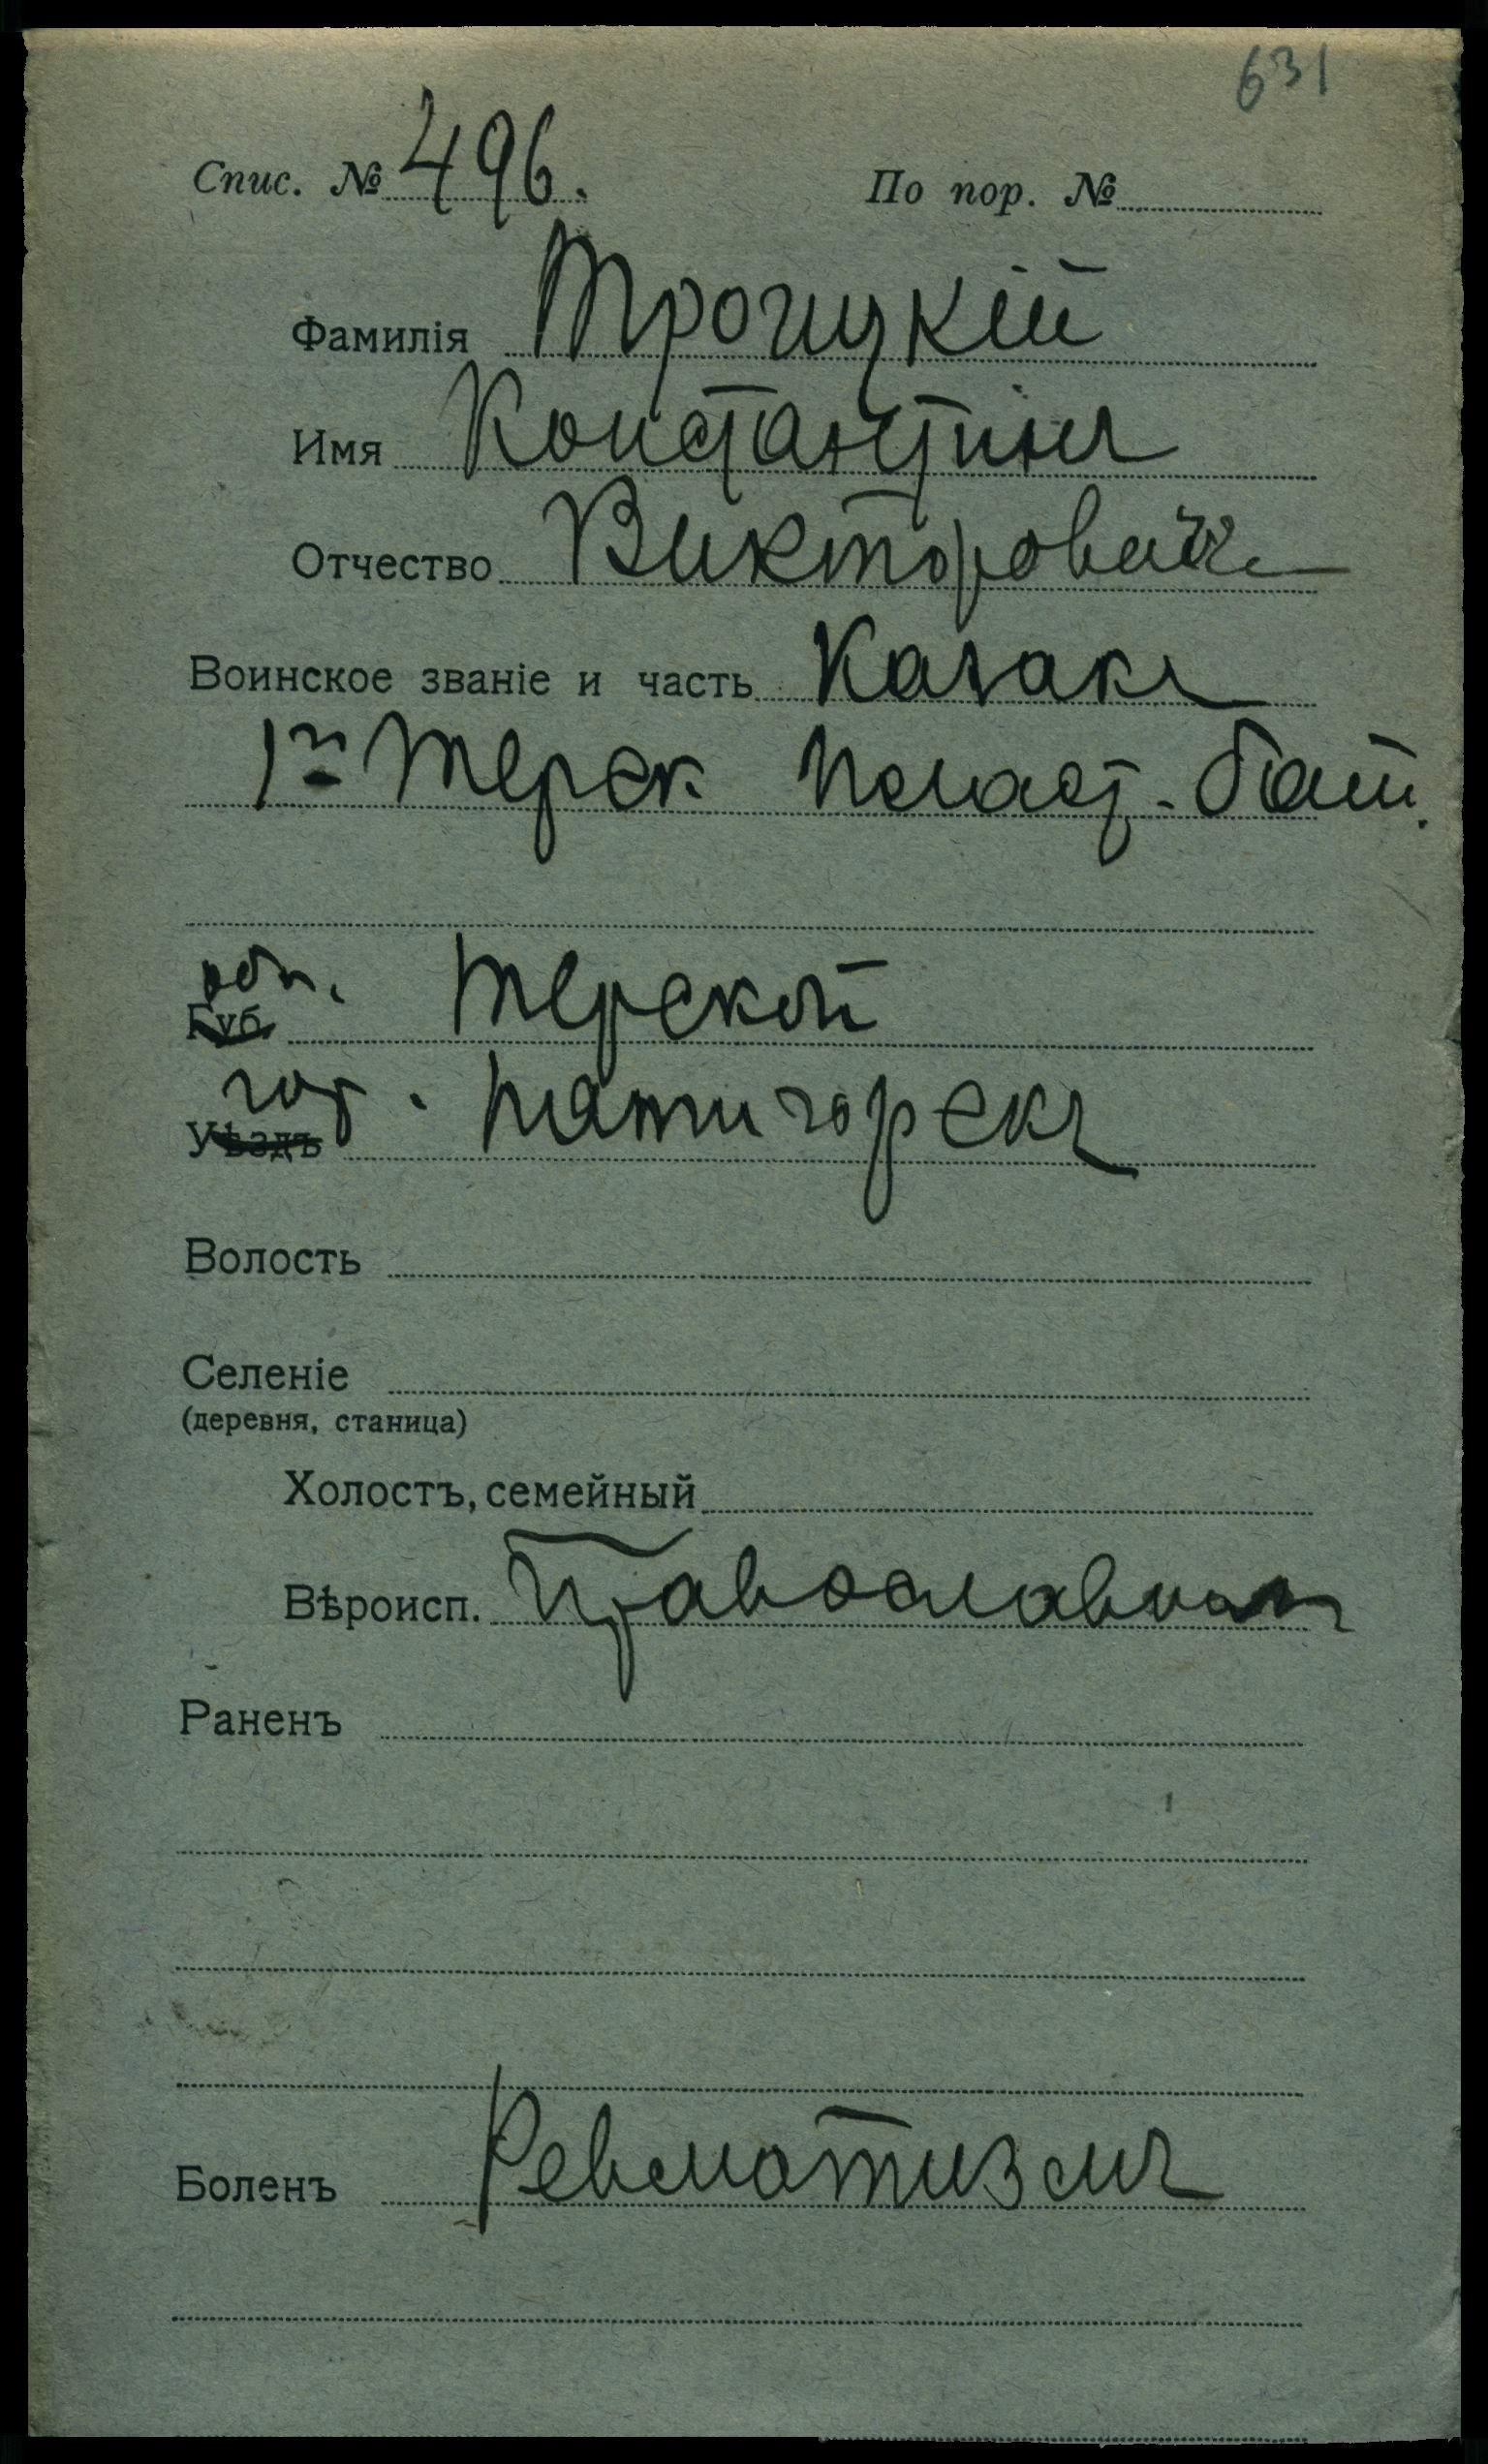 631
Спис. № 496. По пор. №
Фамилія Троицкій
Имя Константинъ
Отчество Викторовичъ
Воинское званіе и часть Казакъ
1й Терск Пласт. бат.
обл.
Губ. Терской
гор.
Уѣздъ Пятигорскъ
Волость
Селеніе
(деревня, станица)
Холостъ, семейный
Вѣроисп. Православный
Раненъ
Боленъ Ревматизмъ